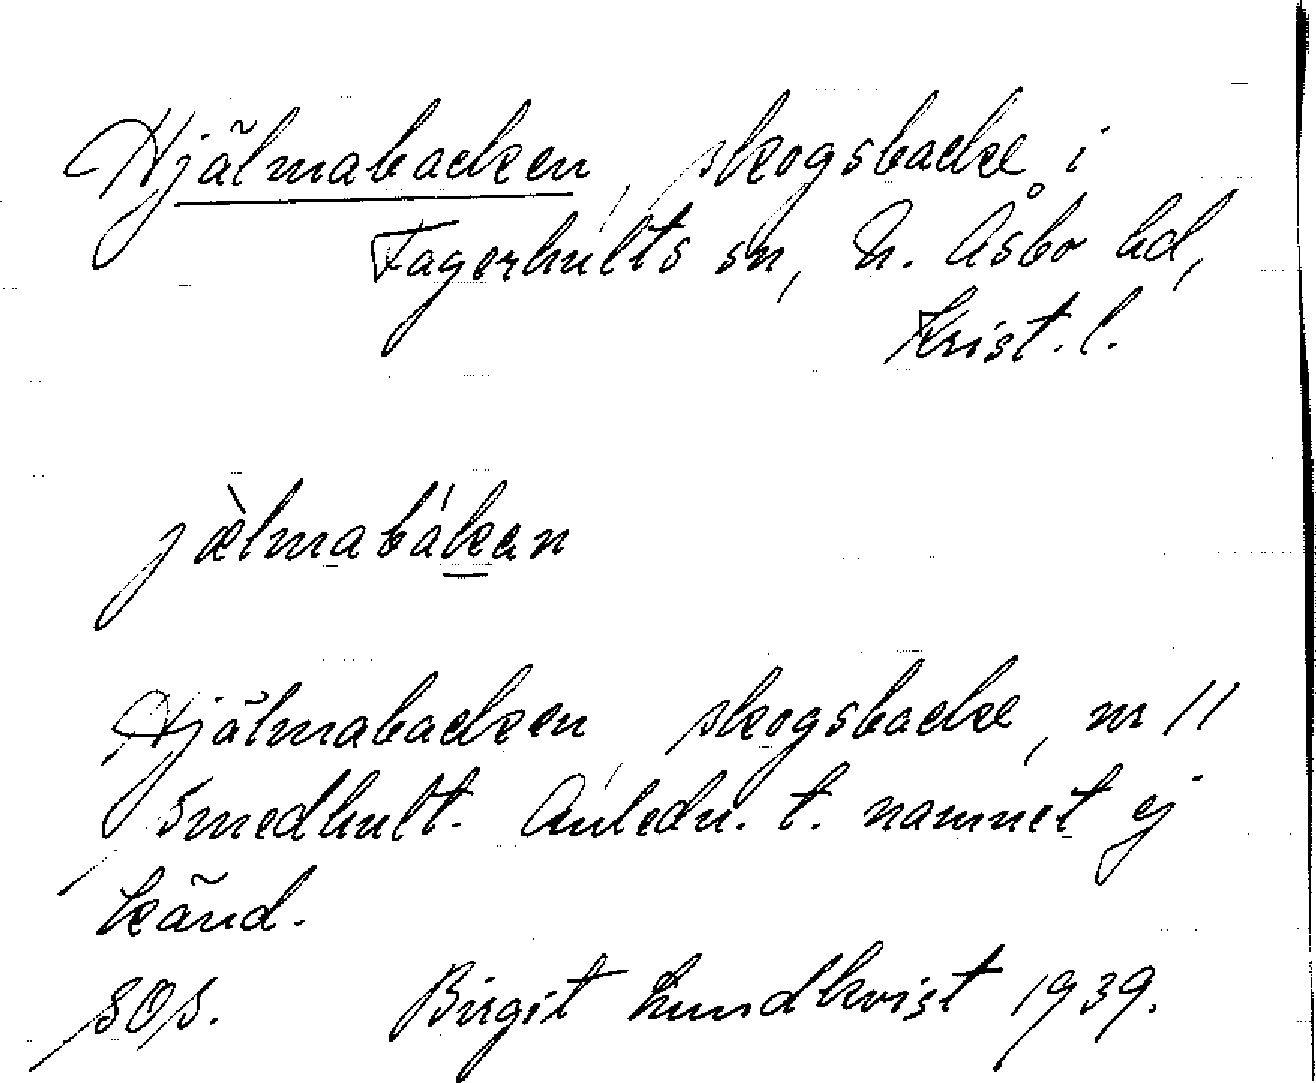 Hjälmabacken, skogsbacke i
Fagerhults sn, N. Åsbo hd,
Krist. l.
jæ̀lmabákan
Hjälmabacken, skogsbacke, nr 11
Smedhult. Anledn. t. namnet ej
känd.
SOS. Birgit Lundkvist 1939.